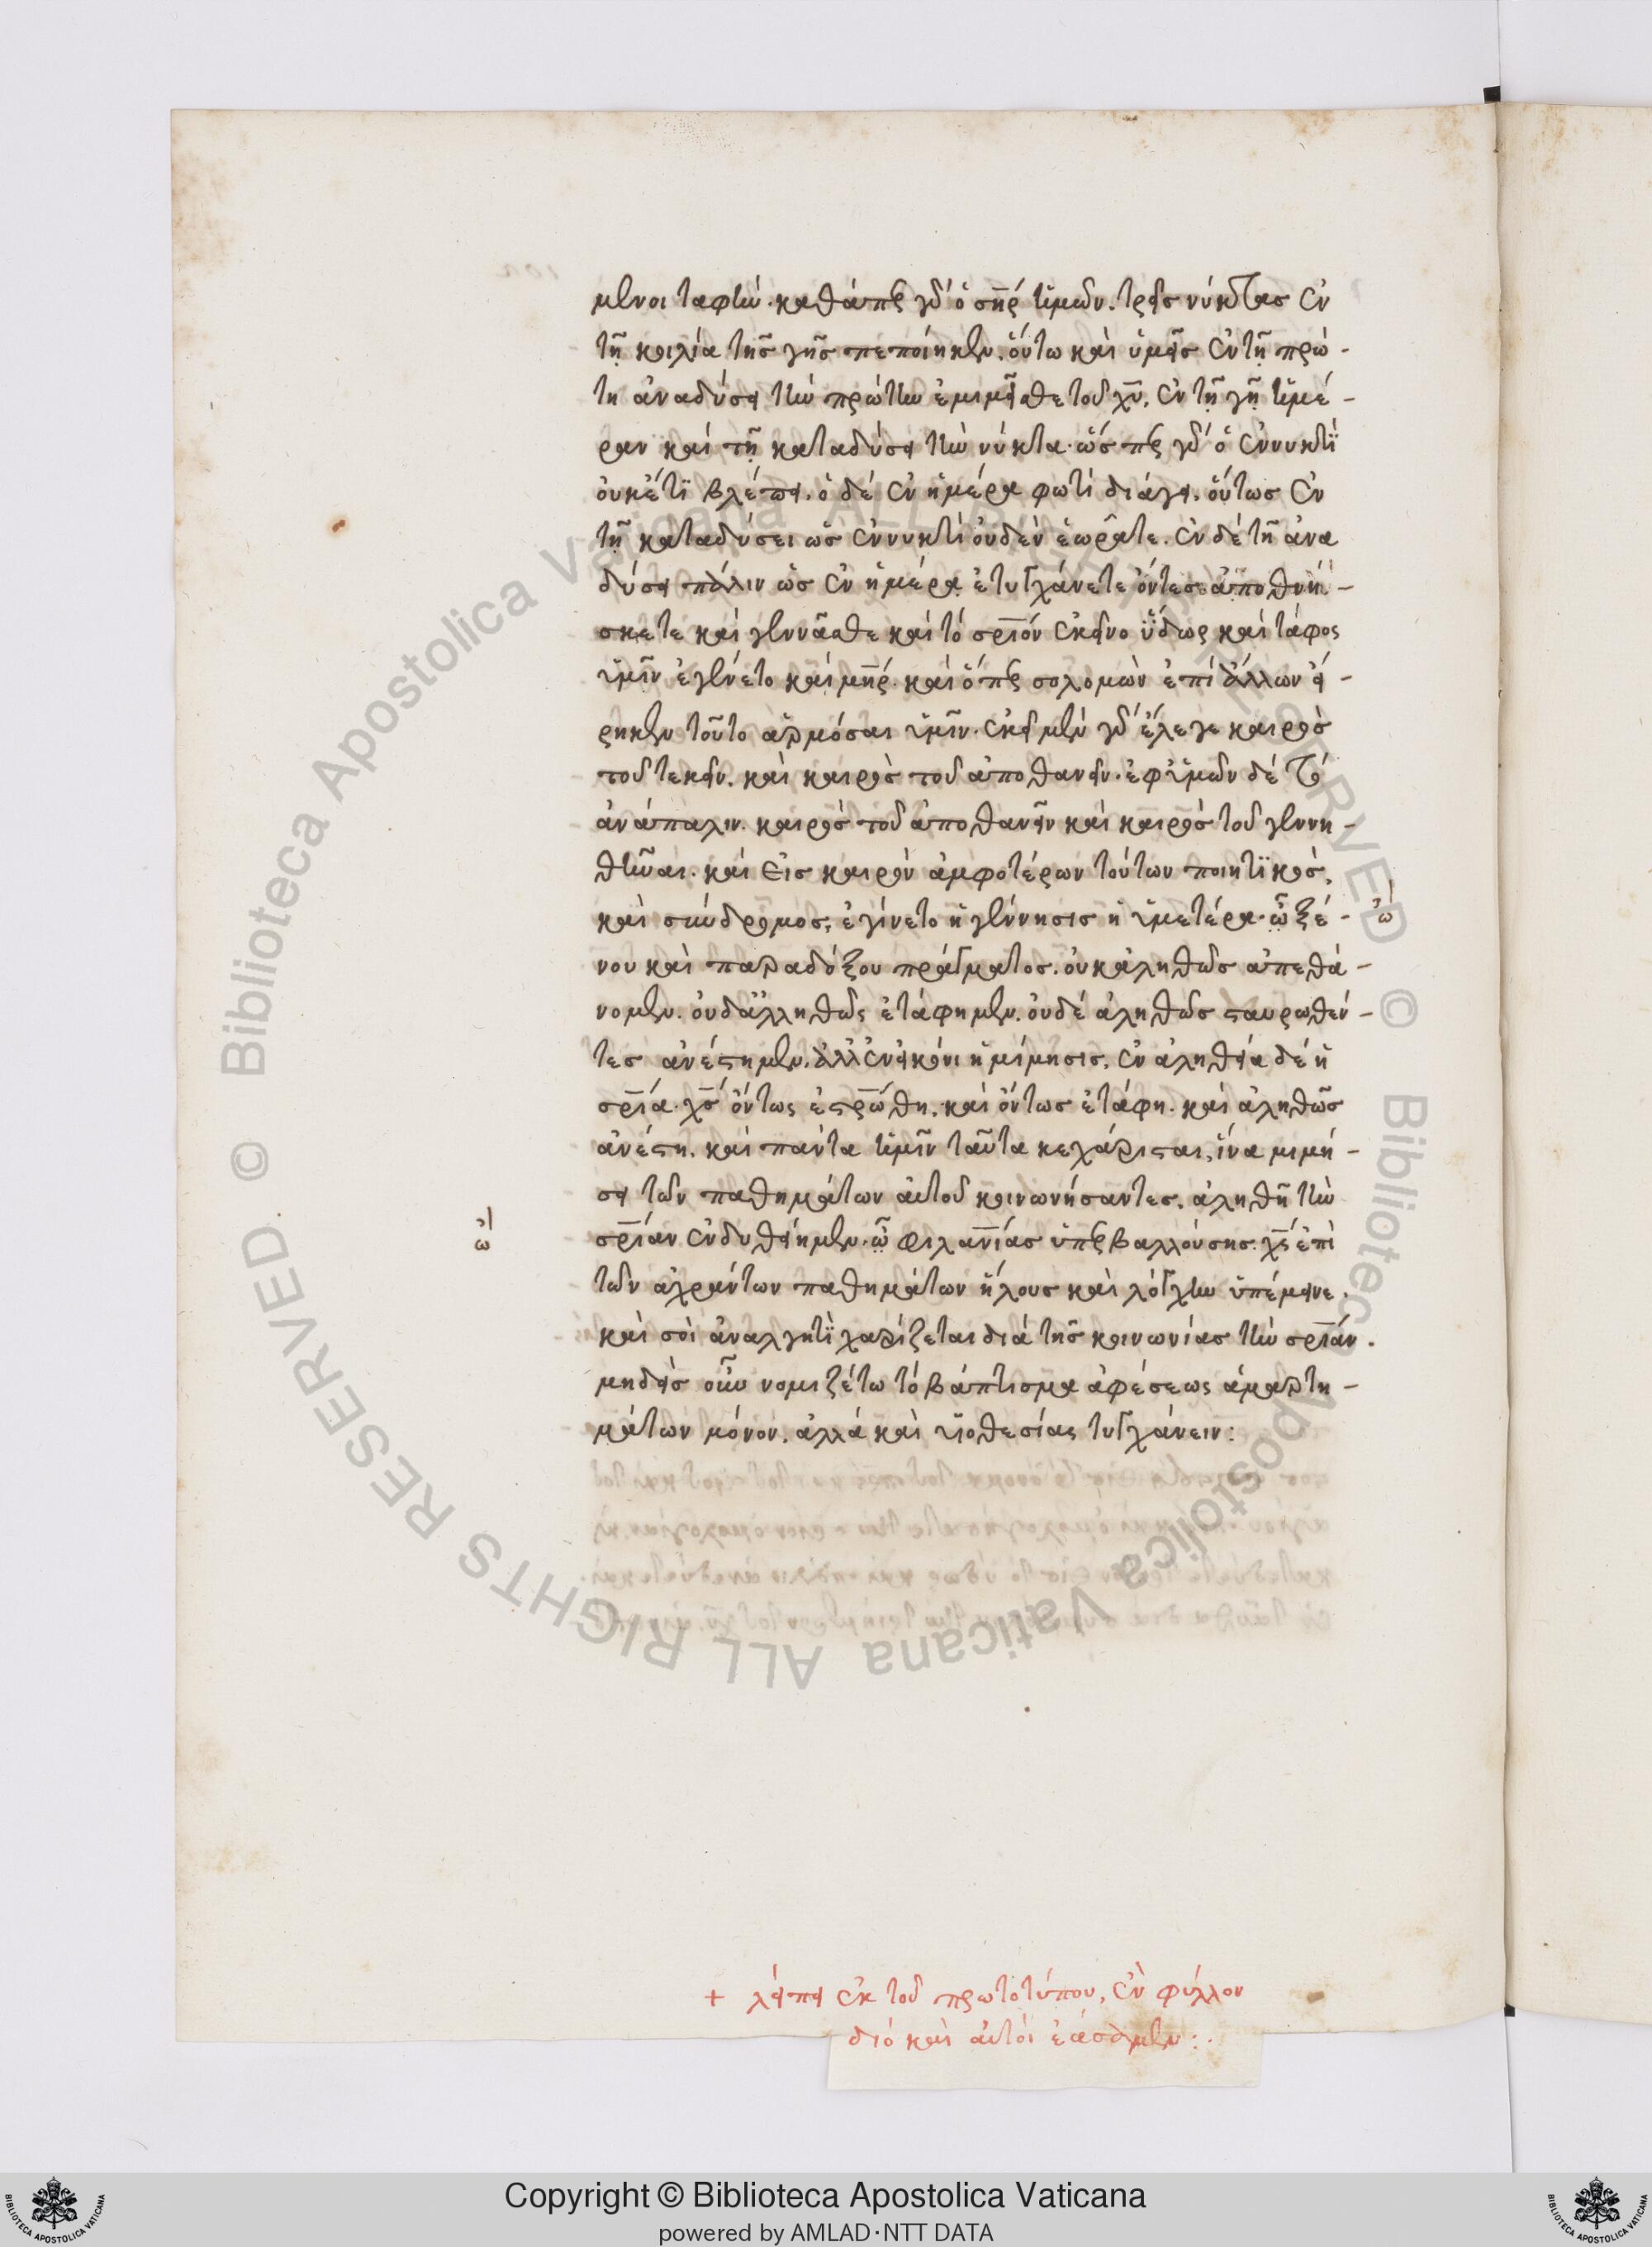 μενοι ταφήν. καθάπερ γὰρ ὁ σηρ ἡμῶν. τρεῖς νύκτας ἐν
τῇ κοιλία τῆς γῆς πεποίηκεν. οὕτω καὶ ὑμεῖς ἐν τῇ πρώ-
τη ἀναδύσει τὴν πρώτην ἐμιμεῖσθε τοῦ χυ, ἐν τῇ γῇ ἡμέ-
ραν καὶ τῇ καταδύσει τὴν νύκτα. ὥσπερ γὰρ ὁ ἐν νυκτὶ
οὐκέτι βλέπει. ὁ δὲ ἐν ἡμέρα φωτὶ διάγει. οὕτως ἐν
τῇ καταδύσει ὡς ἐν νυκτὶ οὐδὲν ἑωρᾶτε. ἐν δὲ τῇ ἀνα
δύσει πάλιν ὡς ἐν ἡμέρα ἐτυγχάνετε ὄντες. ἀποθνή-
σκετε καὶ γεννᾶσθε καὶ τὸ σριον ἐκεῖνο ὕδωρ καὶ τάφος
ὑμῖν ἐγένετο καὶ μηρ. καὶ ὅπερ σολομὼν ἐπὶ ἄλλων εἴ-
ρηκεν τοῦτο ἁρμόσαι ὑμῖν. ἐκεῖ μὲν γὰρ ἔλεγε καιρὸς
τοῦ τεκεῖν. καὶ καιρὸς τοῦ ἀποθανεῖν. ἐφ ὑμῶν δὲ τὸ
ἀνάπαλιν. καιρὸς τοῦ ἀποθανεῖν καὶ καιρὸς τοῦ γεννη-
θῆναι. καὶ εἷς καιρὸν ἀμφοτέρων τούτων ποιητικὸς,
καὶ σύνδρομος, ἐγίνετο ἡ γέννησις ἡ ὑμετέρα. ὦ ξέ-
ὦ
νου καὶ παραδόξου πράγματος. οὐκ ἀληθῶς ἀπεθά-
νομεν. οὐδ ἀλληθῶς ἐτάφημεν. οὐδὲ ἀληθῶς σταυρωθέν-
τες ἀνέστημεν. ἀλλ ἐν εἰκόνι ἡ μίμησις, ἐν ἀληθεία δὲ ἡ
σρια. χς ὄντως ἐστρώθη. καὶ ὄντως ἐτάφη. καὶ ἀληθῶς
ἀνέστη. καὶ πάντα ἡμῖν ταῦτα κεχάρισται, ἵνα μιμή-
σει τῶν παθημάτων αὐτοῦ κοινωνήσαντες. ἀληθῆ τὴν
ὦ
σριαν ἐνδυθείημεν. ὦ φιλανιας ὑπερβαλλούσης. χς ἐπὶ
τῶν ἀχράντων παθημάτων ἥλους καὶ λόγχην ὑπέμεινε.
καὶ σοὶ ἀναλγητὶ χαρίζεται διὰ τῆς κοινωνίας τὴν σριαν.
μηδεὶς οὖν νομιζέτω τὸ βάπτισμα ἀφέσεως ἁμαρτη-
μάτων μόνον. ἀλλὰ καὶ υἱοθεσίας τυγχάνειν:
+ λείπει ἐκ τοῦ πρωτοτύπου, ἓν φύλλον
διὸ καὶ αὐτοὶ ἐάσαμεν:.
Copyright © Biblioteca Apostolica Vaticana
powered by AMLAD·NTT DATA
© Biblioteca Apostolica Vaticana ALL RIGHTS RESERVED.